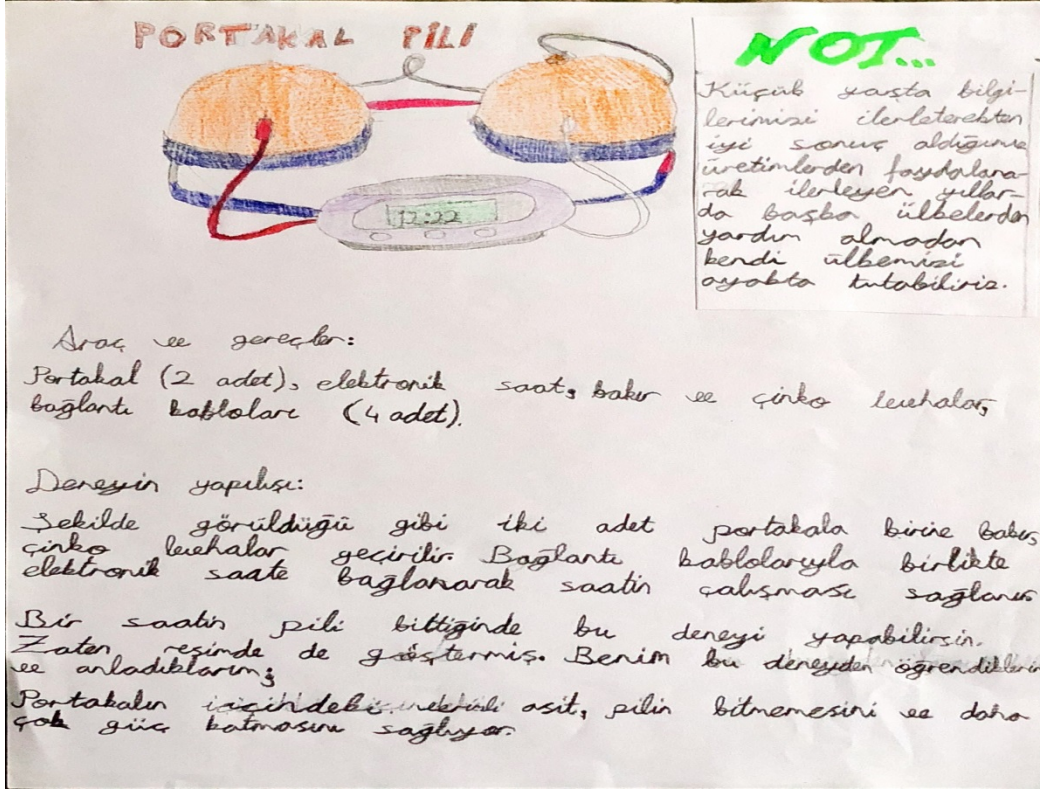 PORTAKAL PİLİ
12:22
NOT...
Küçük yaşta bilgi-
lerimizi ilerleterekten
iyi sonuç aldığımız
üretimlerden faydalana-
rak ilerleyen yıllar-
da başka ülkelerden
yardım almadan
kendi ülkemizi
ayakta tutabiliriz.
Araç ve gereçler:
Portakal (2 adet), elektronik saat, bakır ve çinko levhalar,
bağlantı kabloları (4 adet).
Deneyin yapılışı:
Şekilde görüldüğü gibi iki adet portakala birine bakır,
çinko levhalar geçirilir. Bağlantı kablolarıyla birlikte
elektronik saate bağlanarak saatin çalışması sağlanır
Bir saatin pili bittiğinde bu deneyi yapabilirsin.
Zaten resimde de göstermiş. Benim bu deneyden öğrendiklerim
ve anladıklarım;
Portakalın içindeki asit, pilin bitmemesini ve daha
çok güç katmasını sağlıyor.